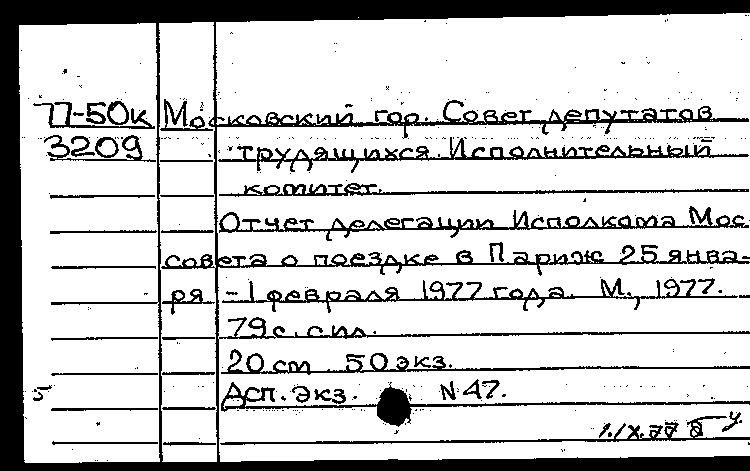 77-50к Московский гор. Совет депутатов
3209 трудящихся. Исполнительный
комитет.
Отчет делегации Исполкома Мос-
совета о поездке в Париж 25 янва-
ря - 1 февраля 1977 года. М., 1977.
79 с. с ил.
20 см 50 экз.
Дсп. Экз. N 47.
5
1.IX.77